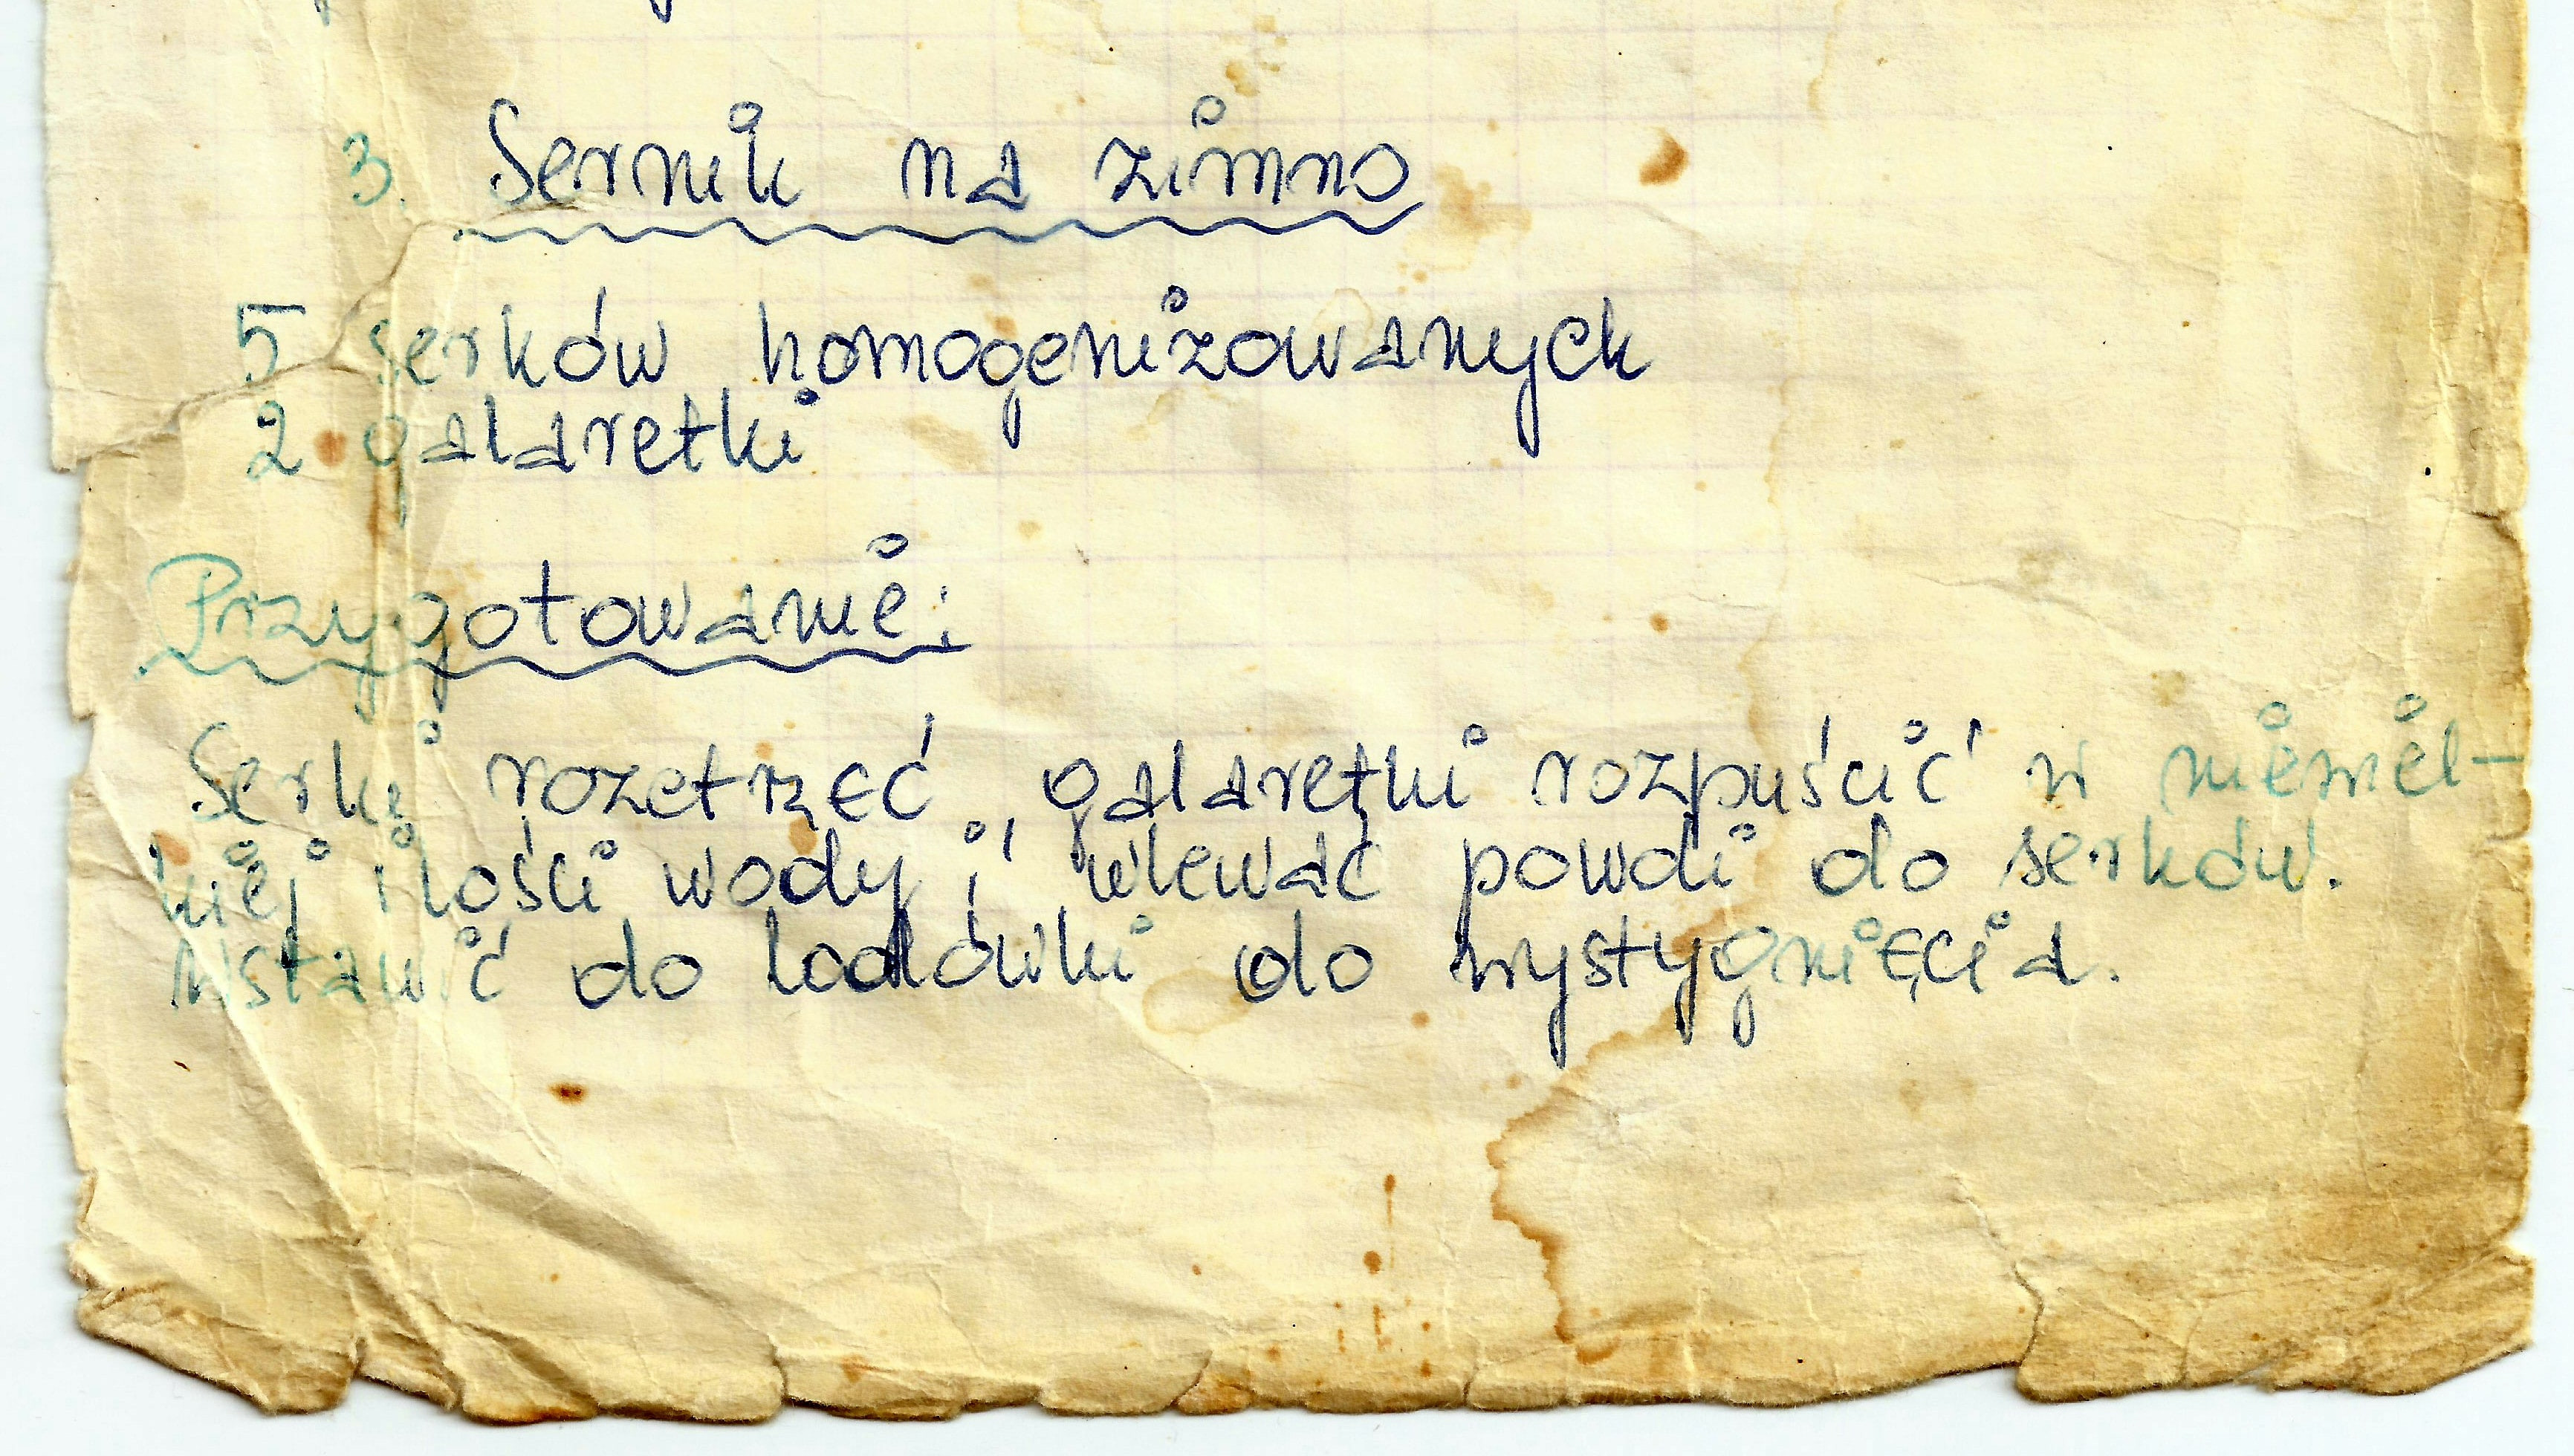 3. Sernik na zimno
5 serków homogenizowanych
2 galaretki
Przygotowanie:
Serki rozetrzeć, galaretki rozpuścić w niewiel-
kiej ilości wody i wlewać powoli do serków.
Wstawić do lodówki do wystygnięcia.